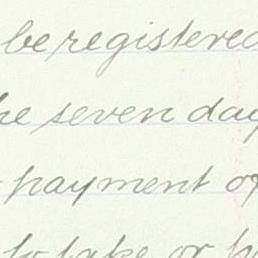 be registered
the seven day
payment of
to take or